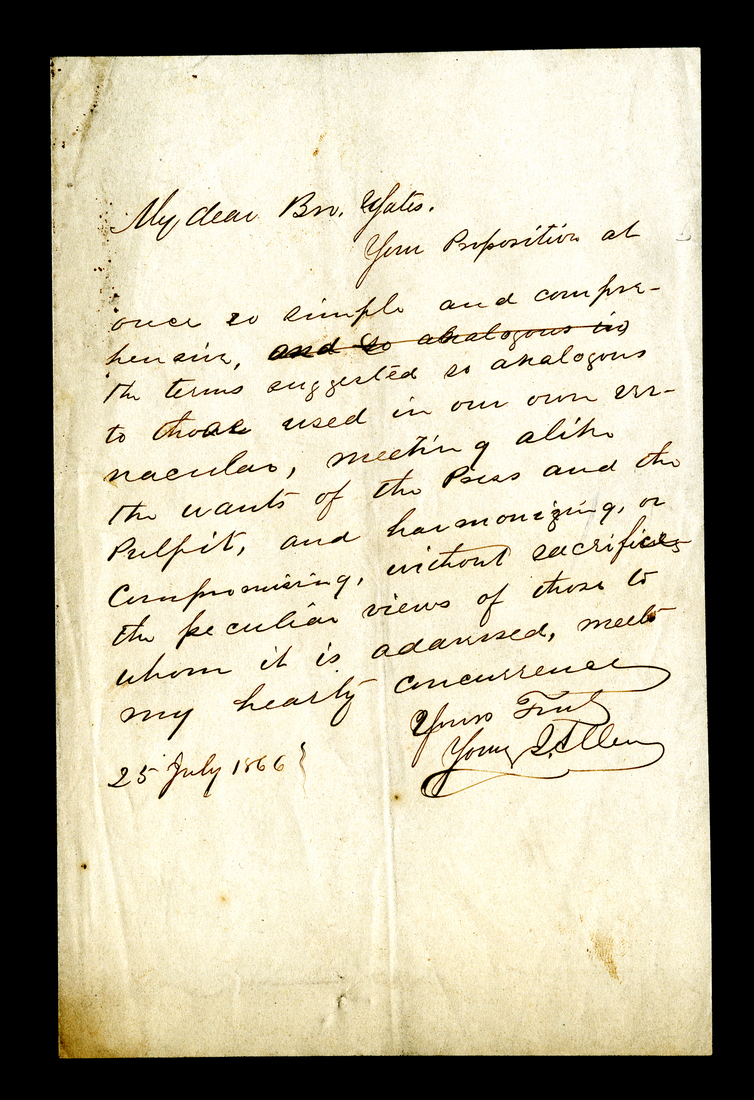 My dear Bro. Yates.
Your Proposition at
once so simple and compre-
hensive, and so analogous in
the terms suggested so analogous
to those used in our own ver-
nacular, meeting alike
the wants of the Press and the
Pulpit, and harmonizing, or
Compromising, without sacrificing
the peculiar views of those to
whom it is addressed, meets
my hearty concurrence
Yours Truly
Young J. Allen
25 July 1866